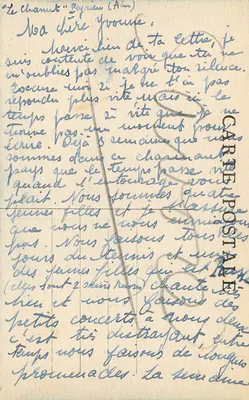 "Le chanut" Peyrieu (Ain)
Ma chère Yvonne,
Merci bien de ta lettre, je
suis contente de voir que tu ne
m'oublies pas malgré ton silence.
Excuse moi si je ne t'ai pas
répondu plus vite mais ici le
temps passe si vite que je ne
trouve pas un moment pour
écrire. Déjà 3 semaines que nous
sommes dans ce charmant
pays que le temps passe vite
quand l'entourage vous
plaît. Nous sommes quatre
jeunes filles et je t'assure
que nous ne nous ennuyons
pas. Nous faisons tous les
jours du tennis et une
des jeunes filles qui est
(elles sont 2 sœurs) chante très
bien et nous faisons des
petits concerts à nous deux
c'est très distrayant, entre
temps nous faisons de longues
promenades. La semaine
CARTE POSTALE